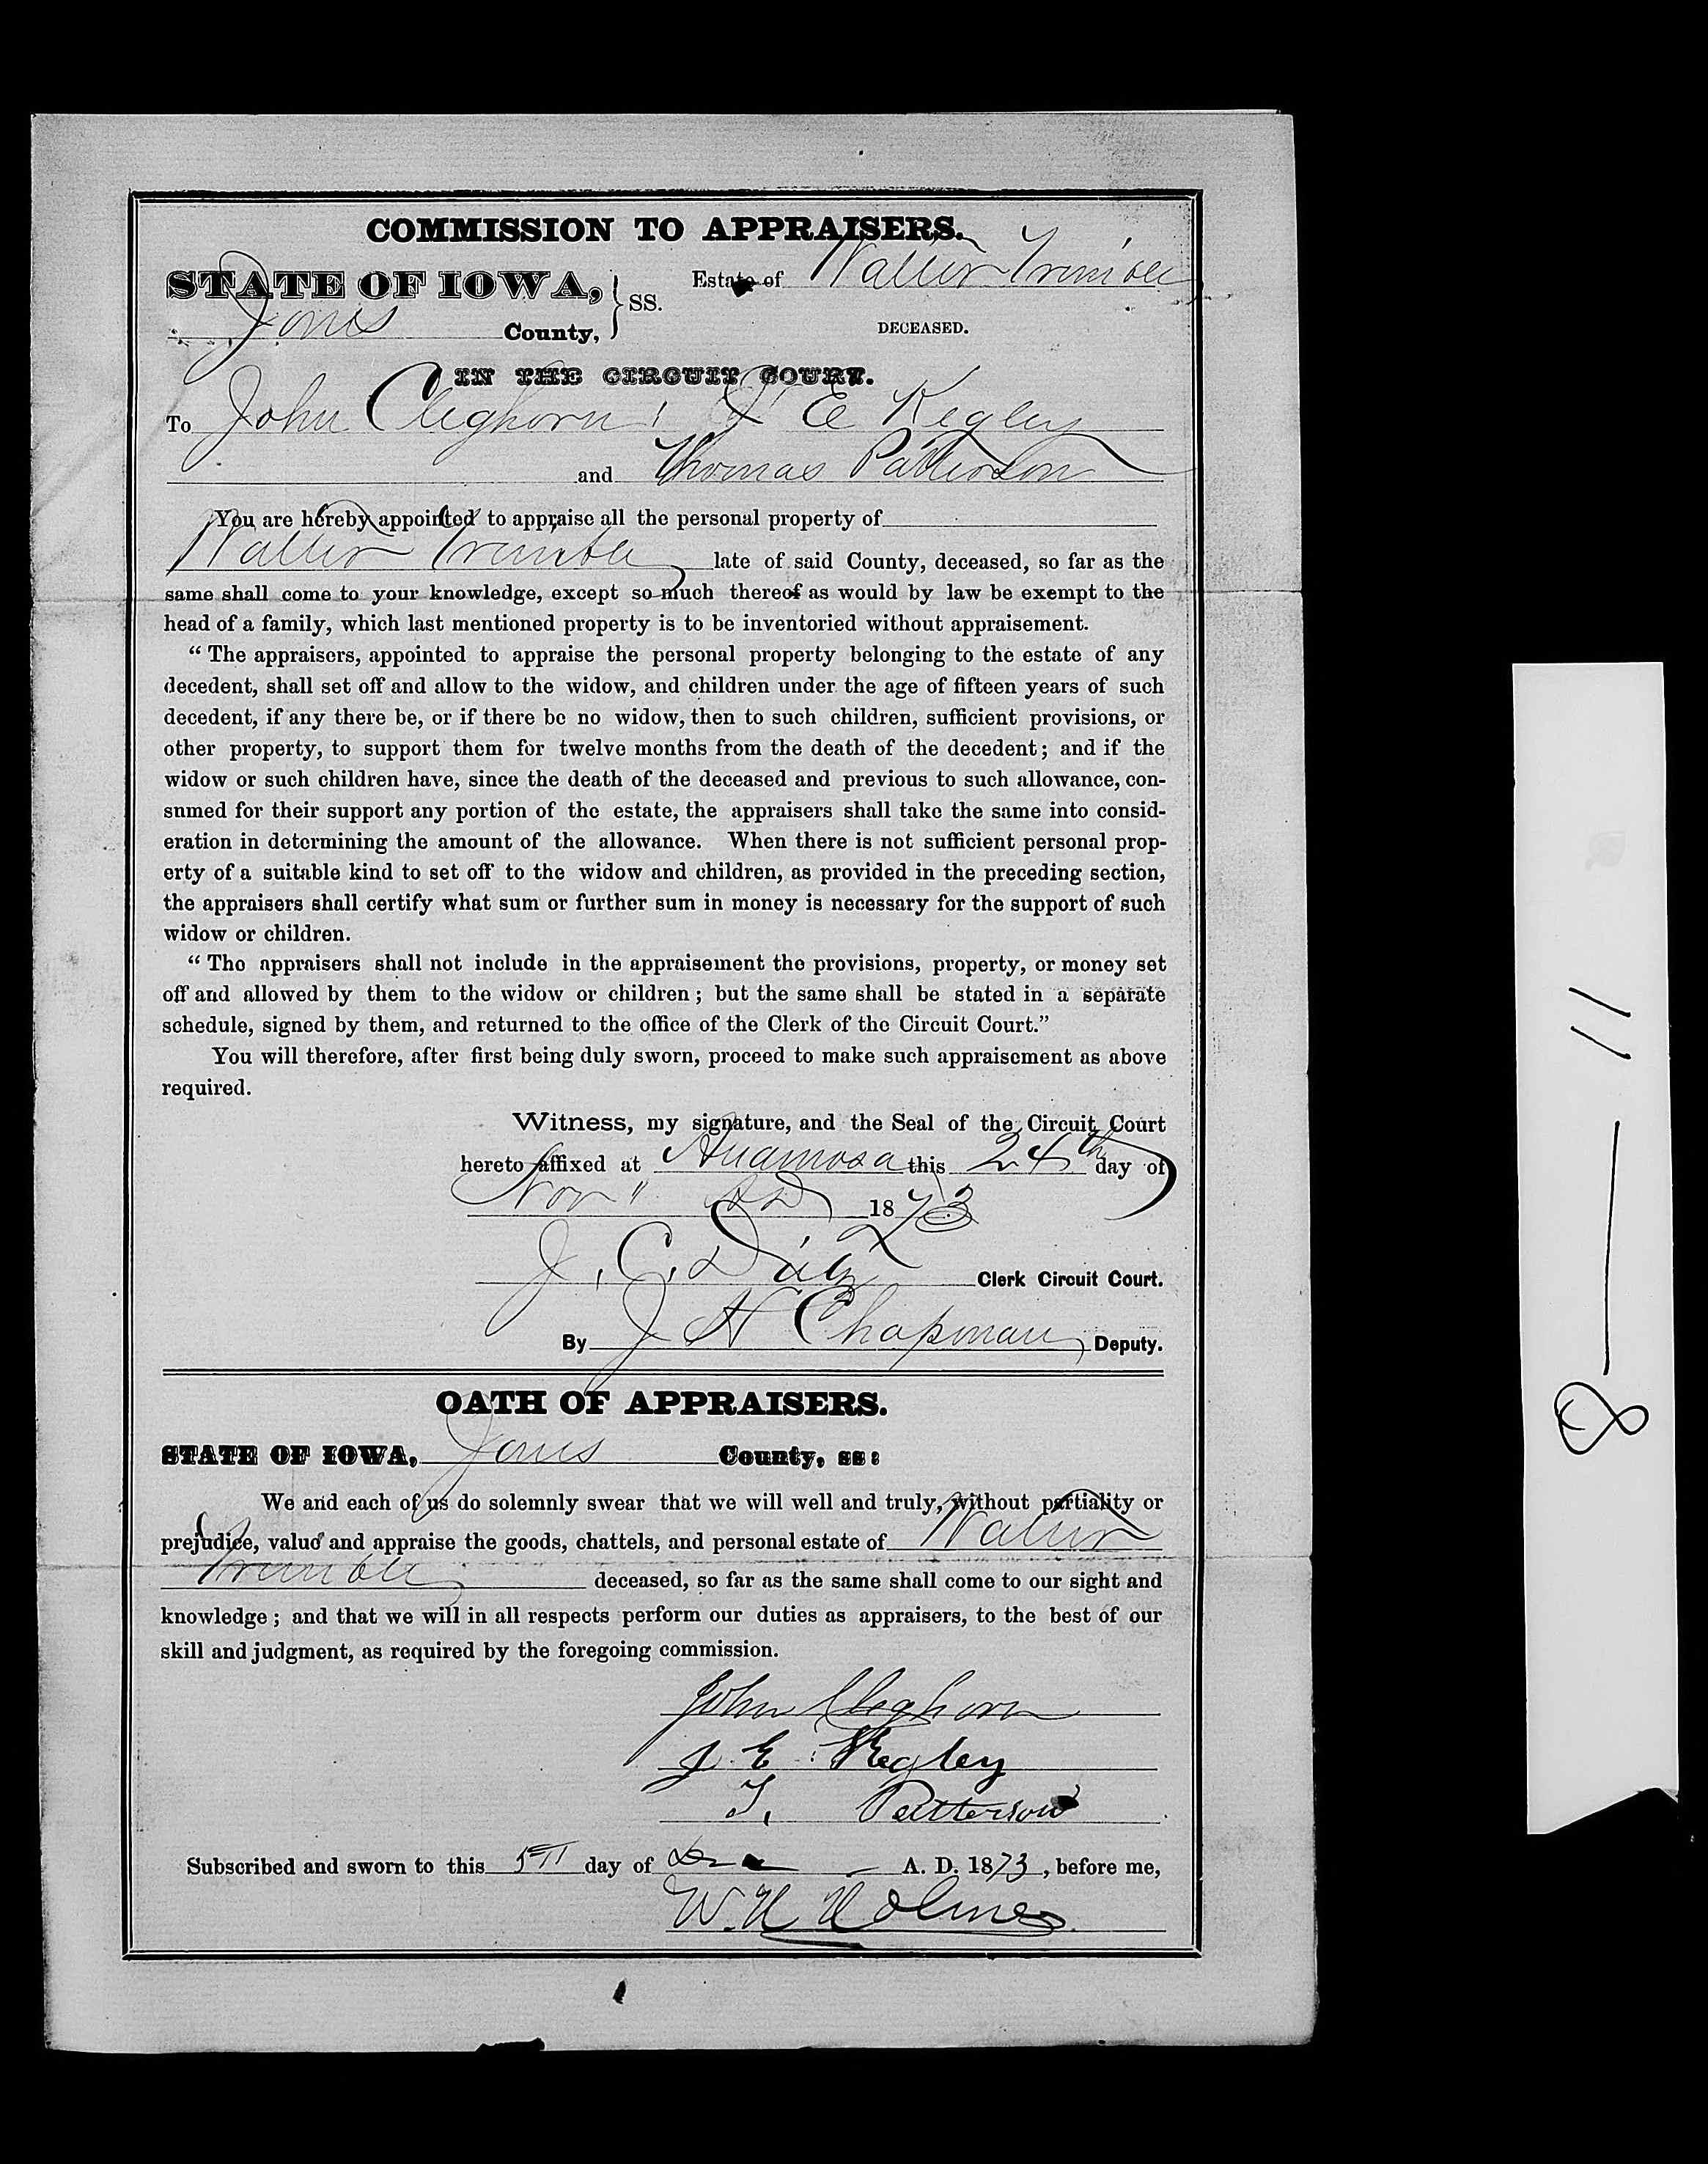 COMMISSION TO APPRAISERS.
STATE OF IOWA, } SS. Estate of Walter Tremble
Jones County, DECEASED.
IN THE CIRCUIT COURT.
To John Cleghorn, J E Kegley
and Thomas Patterson
You are hereby appointed to appraise all the personal property of
Walter Tremble late of said County, deceased, so far as the
same shall come to your knowledge, except so much thereof as would by law be exempt to the
head of a family, which last mentioned property is to be inventoried without appraisement.
“ The appraisers, appointed to appraise the personal property belonging to the estate of any
decedent, shall set off and allow to the widow, and children under the age of fifteen years of such
decedent, if any there be, or if there be no widow, then to such children, sufficient provisions, or
other property, to support them for twelve months from the death of the decedent; and if the
widow or such children have, since the death of the deceased and previous to such allowance, con-
sumed for their support any portion of the estate, the appraisers shall take the same into consid-
eration in determining the amount of the allowance. When there is not sufficient personal prop-
erty of a suitable kind to set off to the widow and children, as provided in the preceding section,
the appraisers shall certify what sum or further sum in money is necessary for the support of such
widow or children.
“ The appraisers shall not include in the appraisement the provisions, property, or money set
off and allowed by them to the widow or children ; but the same shall be stated in a separate
schedule, signed by them, and returned to the office of the Clerk of the Circuit Court.”
You will therefore, after first being duly sworn, proceed to make such appraisement as above
required.
Witness, my signature, and the Seal of the Circuit Court
hereto affixed at Anamosa this 24th day of
Nov " AD 1873
J. C. Dietz Clerk Circuit Court.
By J H Chapman, Deputy.
OATH OF APPRAISERS.
STATE OF IOWA, Jones County, ss:
We and each of us do solemnly swear that we will well and truly, without partiality or
prejudice, value and appraise the goods, chattels, and personal estate of Walter
Tremble deceased, so far as the same shall come to our sight and
knowledge ; and that we will in all respects perform our duties as appraisers, to the best of our
skill and judgment, as required by the foregoing commission.
John Cleghorn
J. E. Kegley
T. Patterson
Subscribed and sworn to this 5th day of Dec A. D. 1873, before me,
W. H Holmes.
8—11